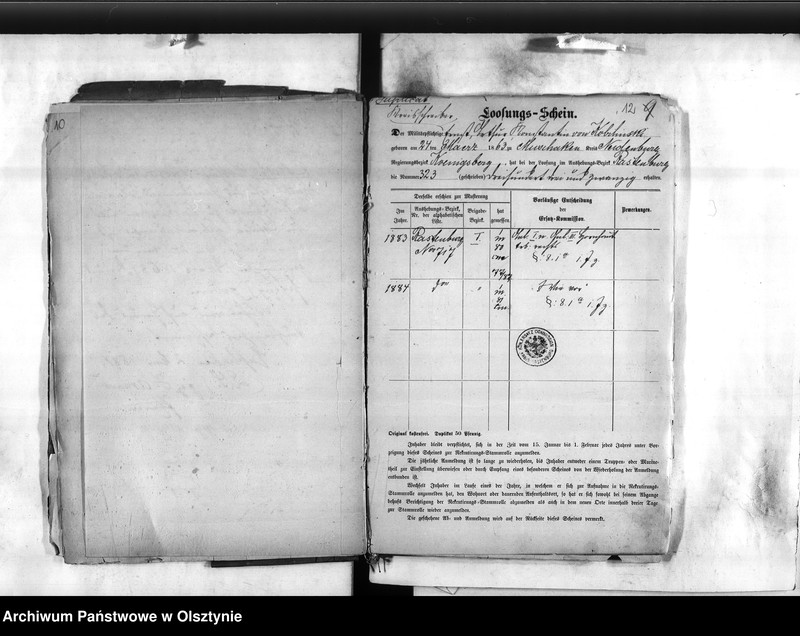 10
Duplikat
Kreisschreiber
12. 9
Loosungs-Schein.
Der Militärpflichtige Ernst, Arthur Konstantin von Kobilinski
geboren am 24ten März 1863 zu Muschaken Kreis Neidenburg
Regierungsbezirk Koenigsberg, hat bei der Loosung im Aushebungs-Bezirk Rastenburg
die Nummer 323 (geschrieben) dreihundert drei und zwanzig erhalten.
Derselbe erschien zur Musterung
Im Jahre.
Aushebungs-Bezirk, Nr. der alphabetischen Liste.
Brigade-Bezirk.
hat gemessen.
Vorläufige Entscheidung der Ersatz-Kommission.
Bemerkungen.
1883 Rastenburg I. 1 m
80
cm
§. 8. 1a i. J. z.
1884 " 1 m
81
cm
§. 8. 1a i. J. z.
Original kostenfrei. Duplikat 50 Pfennig.
Inhaber bleibt verpflichtet, sich in der Zeit vom 15. Januar bis 1. Februar jedes Jahres unter Vor-
zeigung dieses Scheines zur Rekrutirungs-Stammrolle anzumelden.
Die jährliche Anmeldung ist so lange zu wiederholen, bis Inhaber entweder einem Truppen- oder Marine-
theil zur Einstellung überwiesen oder durch Empfang eines besonderen Scheines von der Wiederholung der Anmeldung
entbunden ist.
Wechselt Inhaber im Laufe eines der Jahre, in welchem er sich zur Aufnahme in die Rekrutirungs-
Stammrolle anzumelden hat, den Wohnort oder dauernden Aufenthaltsort, so hat er sich sowohl bei seinem Abgange
behufs Berichtigung der Rekrutirungs-Stammrolle abzumelden als auch in dem neuen Orte innerhalb dreier Tage
zur Stammrolle wieder anzumelden.
Die geschehene Ab- und Anmeldung wird auf der Rückseite dieses Scheines vermerkt.
Archiwum Państwowe w Olsztynie